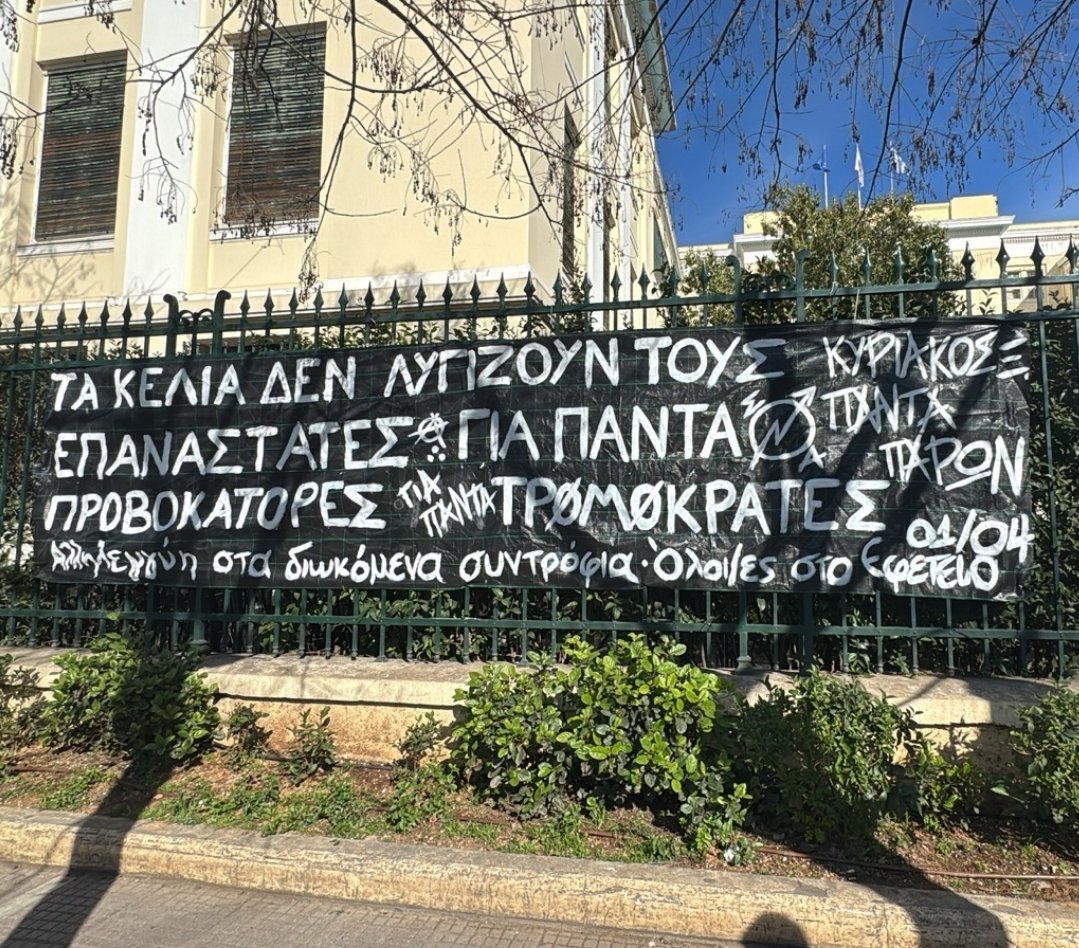 ΤΑ ΚΕΛΙΑ ΔΕΝ ΛΥΓΙΖΟΥΝ ΤΟΥΣ
ΕΠΑΝΑΣΤΑΤΕΣ ΓΙΑ ΠΑΝΤΑ
ΠΡΟΒΟΚΑΤΟΡΕΣ ΓΙΑ ΠΑΝΤΑ ΤΡΟΜΟΚΡΑΤΕΣ
ΚΥΡΙΑΚΟΣ Ξ
ΠΑΝΤΑ
ΠΑΡΩΝ
Αλληλεγγύη στα διωκόμενα συντρόφια · Όλοι/ες στο Εφετείο
01/04